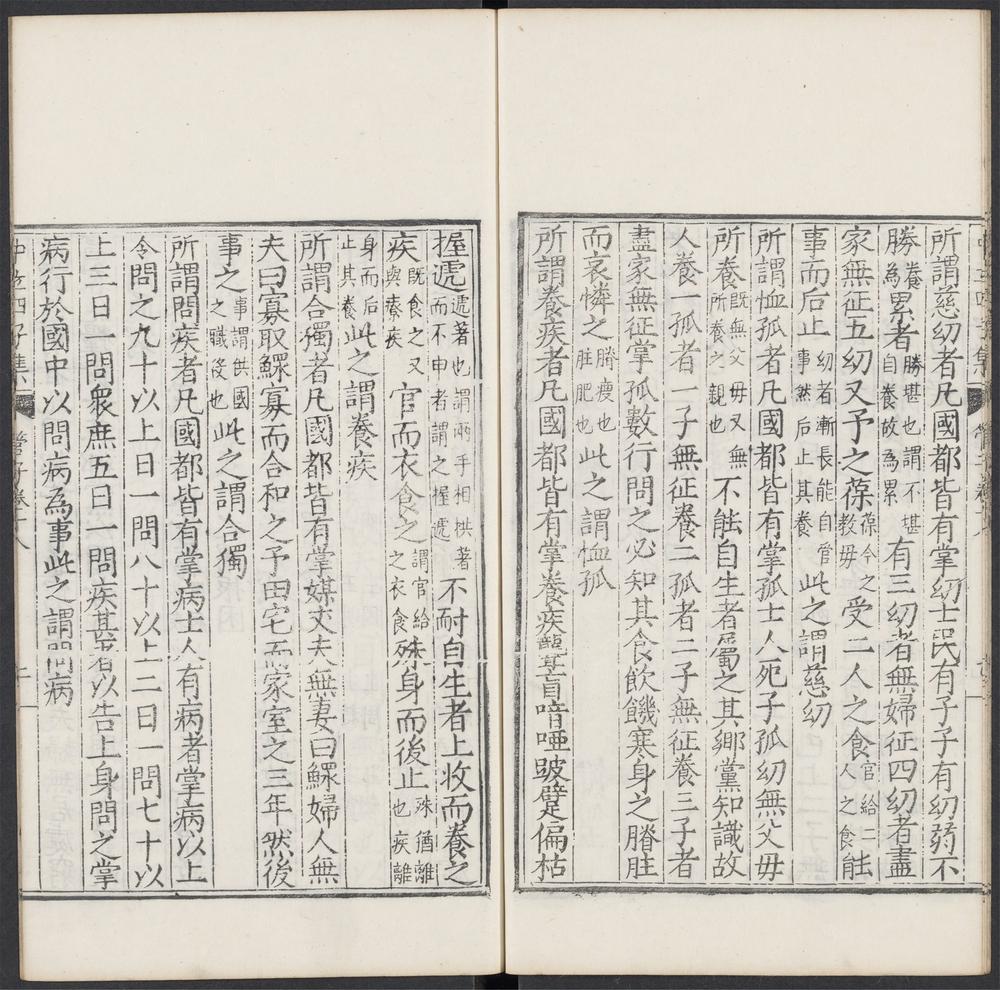 所謂慈幼者凡國都皆有掌幼士民有子子有幼弱不
勝養為累者勝堪也謂不堪自養故為累有三幼者無婦征四幼者盡
家無征五幼又予之葆葆今之教母受二人之食官給二人之食能
事而后止幼者漸長能自管事然后止其養此之謂慈幼
所謂恤孤者凡國都皆有掌孤士人死子孤幼無父毋
所養既無父毋又無所養之親也不能自生者屬之其鄉黨知識故
人養一孤者一子無征養二孤者二子無征養三子者
盡家無征掌孤數行問之必知其食飲饑寒身之膌胜
而哀憐之膌瘦也胜肥也此之謂恤孤
所謂養疾者凡國都皆有掌養疾聾盲喑啞跛躄偏枯
握遞遞著也謂兩手相拱著而不申者謂之握遞不耐自生者上收而養之
疾既食之又與療疾官而衣食之謂官給之衣食殊身而後止殊猶離也疾離
身而后止其養此之謂養疾
所謂合獨者凡國都皆有掌媒丈夫無妻曰鰥婦人無
夫曰寡取鰥寡而合和之予田宅而家室之三年然後
事之事謂供國之職役也此之謂合獨
所謂問疾者凡國都皆有掌病士人有病者掌病以上
令問之九十以上日一問八十以上二日一問七十以
上三日一問衆庶五日一問疾甚者以告上身問之掌
病行於國中以問病為事此之謂問病
中立四子集 管子卷十八